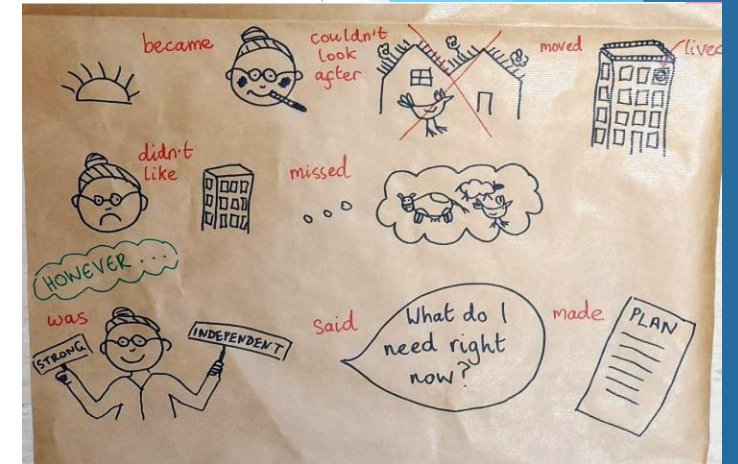 became
couldn't
look
after
moved
lived
didn't
like
missed
HOWEVER...
was
STRONG
INDEPENDENT
said
What do I
need right
now?
made
PLAN